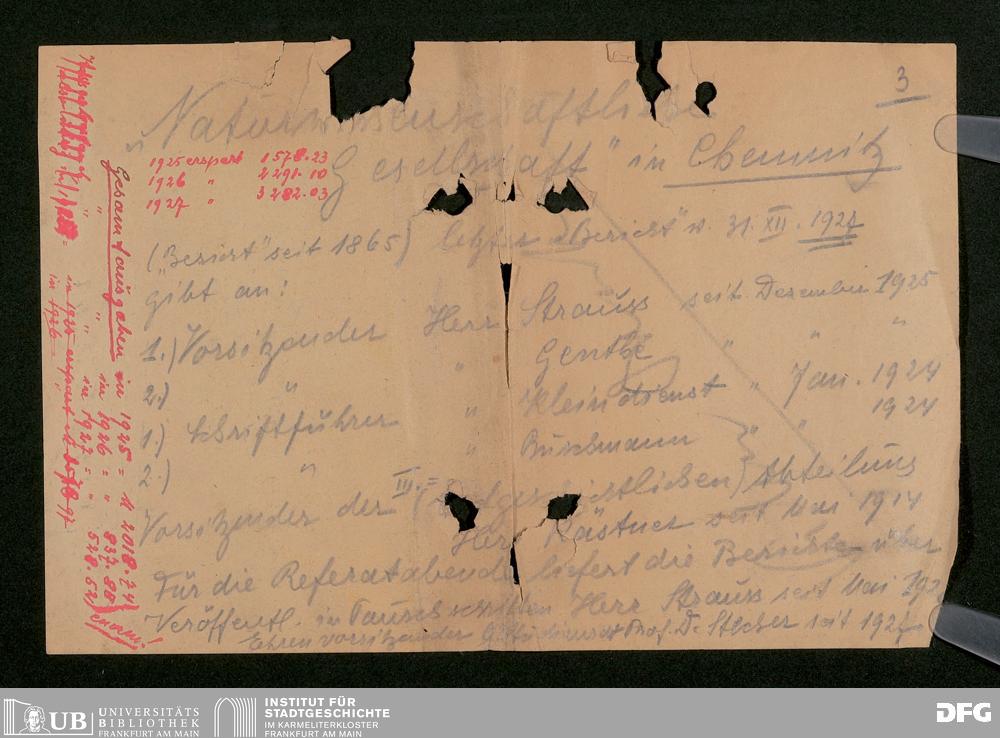 3
"Naturwissenschaftliche
Gesellschaft" in Chemnitz
1925 erspart 1578.23
1926 " 2291.10
1927 " 3282.03
("Bericht" seit 1865) letzter "Bericht" v. 31. XII. 1927
gibt an:
1.) Vorsitzender Herr Strauss seit Dezember 1925
2.) " " Genthe " " "
1.) Schriftführer " Kleindienst " Jan. 1924
2.) " " Buschmann " " 1924
Vorsitzender der III. = (geschichtlichen) Abteilung
Herr Kästner seit Mai 1914
Für die Referatabende liefert die Berichte über
Veröffentl. in Tauschschriften Herr Strauss seit Mai 192
Ehrenvorsitzender Prof. Dr. Stecher seit 1927
Gesamtausgaben in 1925 = M 2018.74
" in 1926 = " 837.88
" in 1927 = " 528.52 enorm!
in 1925 erspart
in 1926 =
UB UNIVERSITÄTS
BIBLIOTHEK
FRANKFURT AM MAIN
INSTITUT FÜR
STADTGESCHICHTE
IM KARMELITERKLOSTER
FRANKFURT AM MAIN
DFG